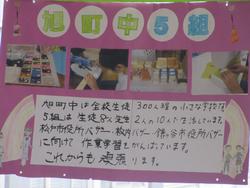 旭町中5組
旭町中は全校生徒300人弱の小さな学校
5組は生徒8人と先生2人の10人で生活しています。
松戸市役所バザー・校内バザー・鎌ヶ谷市役所バザー
に向けて作業学習をがんばっています。
これからも頑張ります。